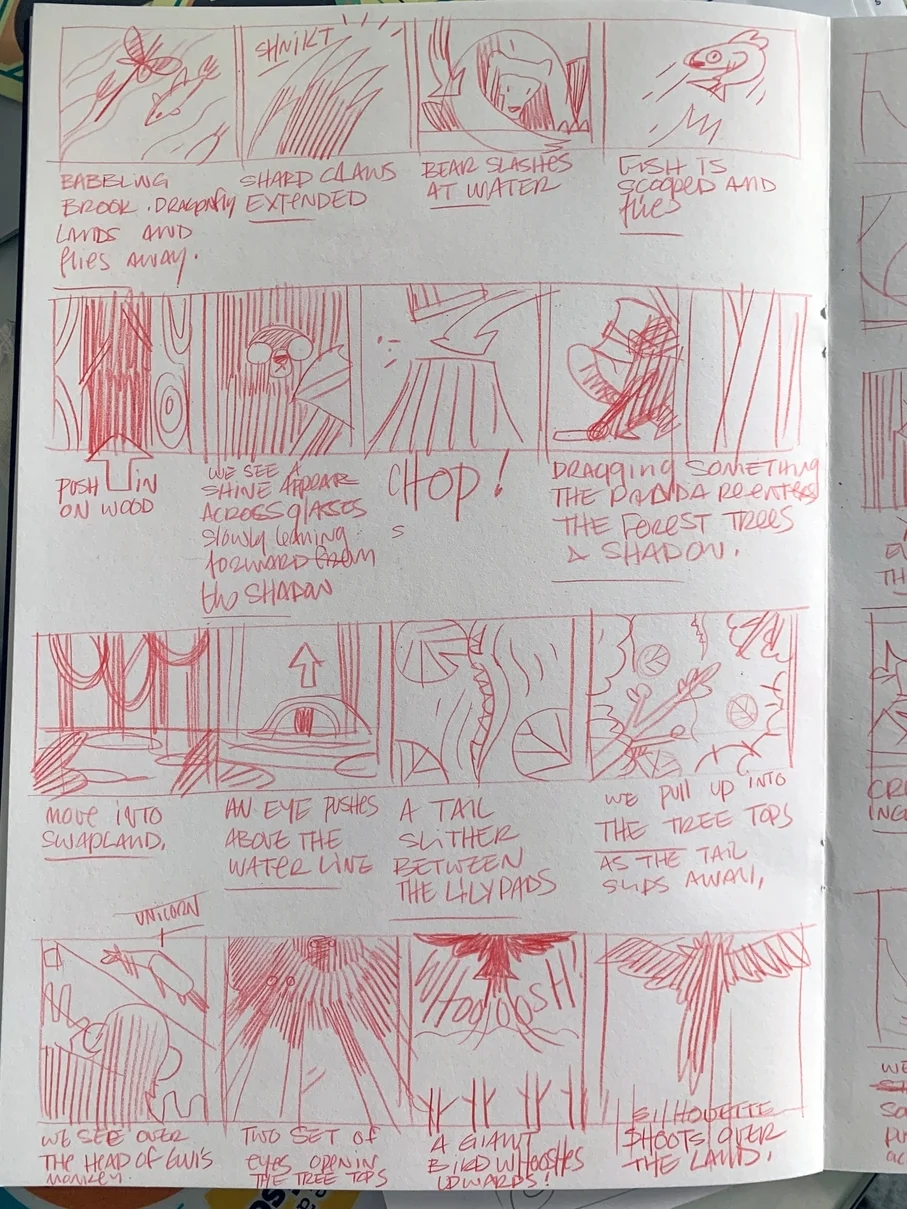 SHNIKT
BABBLING
BROOK. DRAGONFLY
LANDS AND
FLIES AWAY.
SHARD CLAWS
EXTENDED
BEAR SLASHES
AT WATER
FISH IS
SCOOPED AND
FLIES
PUSH IN
ON WOOD
WE SEE A
SHINE APPEAR
ACROSS GLASSES
SLOWLY LEANING
FORWARD FROM
THE SHADOW
CHOP!
S
DRAGGING SOMETHING
THE PANDA REENTERS
THE FOREST TREES
& SHADOW.
MOVE INTO
SWAPLAND.
AN EYE PUSHES
ABOVE THE
WATER LINE
A TAIL
SLITHER
BETWEEN
THE LILYPADS
WE PULL UP INTO
THE TREE TOPS
AS THE TAIL
SLIDS AWAY,
UNICORN
HOOOOSH
WE SEE OVER
THE HEAD OF
MONKEY.
TWO SET OF
EYES OPEN IN
THE TREE TOPS
A GIANT
BIRD WHOOSHES
UPWARDS!
SILHOUETTE
SHOOTS OVER
THE LAND.
TH
WE